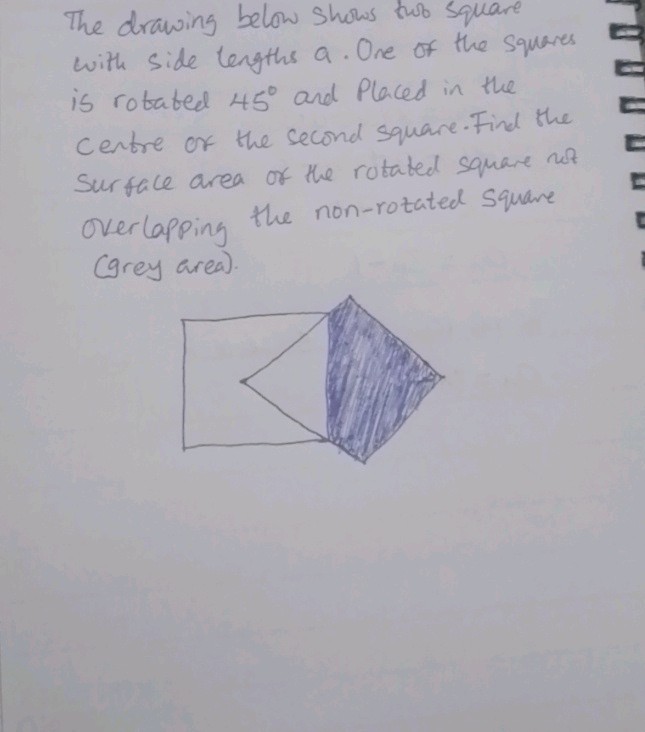 The drawing below shows two square
with side lengths a. One of the squares
is rotated 45° and Placed in the
centre of the second square. Find the
Surface area of the rotated square not
overlapping the non-rotated square
(grey area).